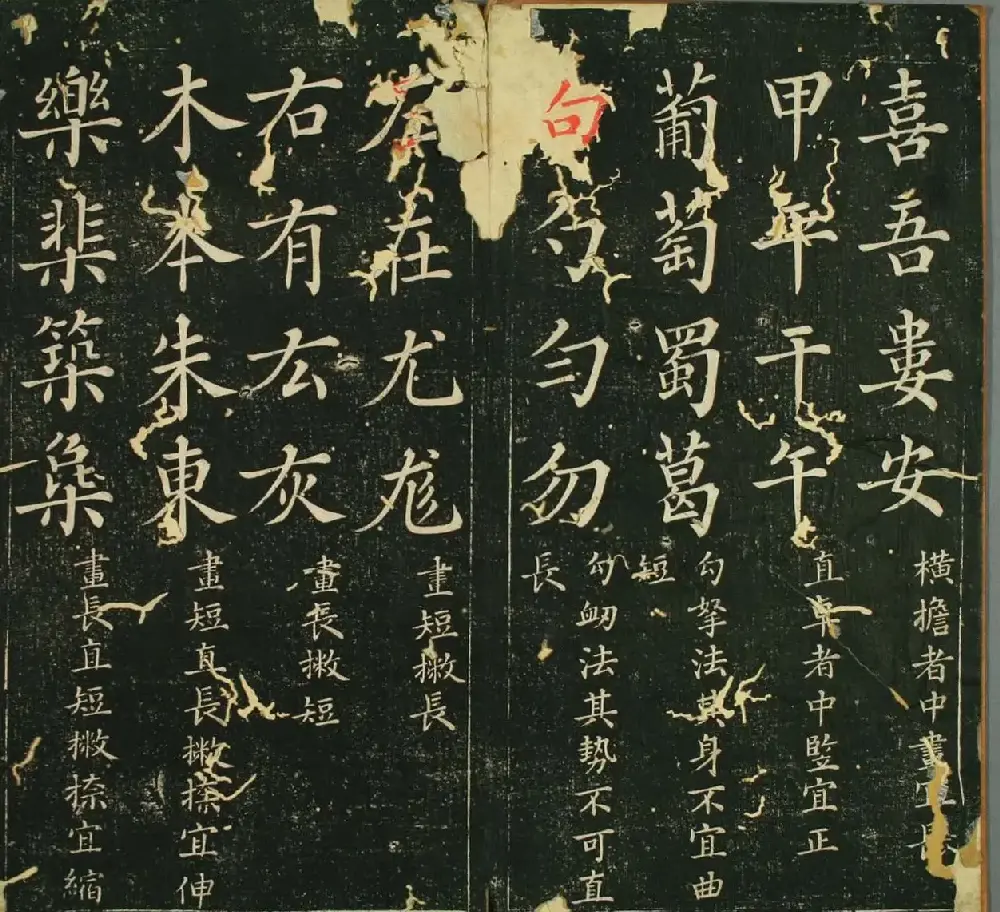 喜吾婁安
橫擔者中畫宜長
甲平干午
直卓者中竪宜正
葡萄蜀葛
勾拏法其身不宜曲
短
句勺勻勿
勾衂法其勢不可直
長
左在尤尨
畫短撇長
右有厷灰
畫長撇短
木本朱東
畫短直長撇㮇宜伸
樂棐築梟
畫長直短撇㮇宜縮